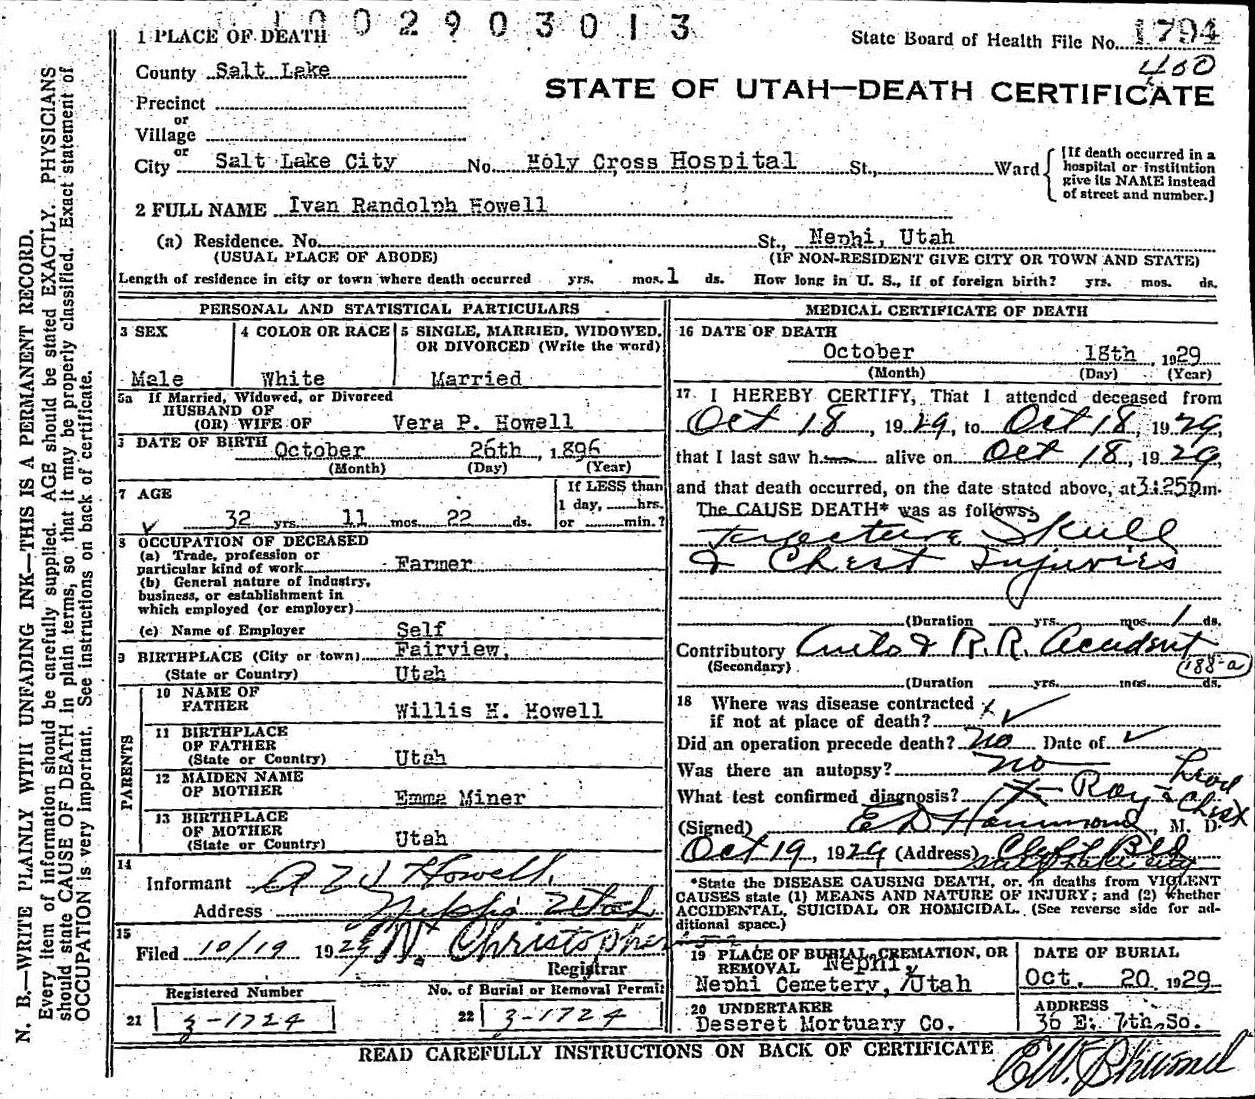 1 0 0 2 9 0 3 0 1 3
1 PLACE OF DEATH
State Board of Health File No. 1794
400
County Salt Lake
STATE OF UTAH—DEATH CERTIFICATE
Precinct
or
Village
or
City Salt Lake City No. Holy Cross Hospital St., Ward
[If death occurred in a
hospital or institution
give its NAME instead
of street and number.]
2 FULL NAME Ivan Randolph Howell
(a) Residence. No. St., Nephi, Utah
(USUAL PLACE OF ABODE) (IF NON-RESIDENT GIVE CITY OR TOWN AND STATE)
Length of residence in city or town where death occurred yrs. mos. 1 ds. How long in U. S., if of foreign birth? yrs. mos. ds.
PERSONAL AND STATISTICAL PARTICULARS
3 SEX
Male
4 COLOR OR RACE
White
5 SINGLE, MARRIED, WIDOWED,
OR DIVORCED (Write the word)
Married
5a If Married, Widowed, or Divorced
HUSBAND OF
(OR) WIFE OF Vera P. Howell
DATE OF BIRTH October 26th, 1896
(Month) (Day) (Year)
7 AGE
32 yrs. 11 mos. 22 ds.
If LESS than
1 day, hrs.
or min.?
8 OCCUPATION OF DECEASED
(a) Trade, profession or
particular kind of work Farmer
(b) General nature of industry,
business, or establishment in
which employed (or employer)
(c) Name of Employer Self
9 BIRTHPLACE (City or town) Fairview,
(State or Country) Utah
PARENTS
10 NAME OF
FATHER Willis H. Howell
11 BIRTHPLACE
OF FATHER
(State or Country) Utah
12 MAIDEN NAME
OF MOTHER Emma Miner
13 BIRTHPLACE
OF MOTHER
(State or Country) Utah
14
Informant Howell
Address Nephi Utah
15
Filed 10/19 1929 N. Christopher
Registrar
Registered Number
21 3-1724
No. of Burial or Removal Permit
22 3-1724
MEDICAL CERTIFICATE OF DEATH
16 DATE OF DEATH
October 18th, 1929
(Month) (Day) (Year)
17 I HEREBY CERTIFY, That I attended deceased from
Oct 18, 1929, to Oct 18, 1929,
that I last saw h alive on Oct 18, 1929,
and that death occurred, on the date stated above, at 3:25p m.
The CAUSE DEATH* was as follows:
Skull
& Chest Injuries
(Duration yrs. mos. 1 ds.
Contributory Auto & R.R. Accident
(Secondary) 188-a
(Duration yrs. mos. ds.
18 Where was disease contracted
if not at place of death?
Did an operation precede death? no Date of
Was there an autopsy? no
What test confirmed diagnosis? X-Ray Head
& Chest
(Signed) E D Hammond, M. D.
Oct 19, 1929 (Address) Clift Bld
Salt Lake City
*State the DISEASE CAUSING DEATH, or, in deaths from VIOLENT
CAUSES state (1) MEANS AND NATURE OF INJURY; and (2) whether
ACCIDENTAL, SUICIDAL OR HOMICIDAL. (See reverse side for ad-
ditional space.)
19 PLACE OF BURIAL, CREMATION, OR
REMOVAL Nephi,
Nephi Cemetery, Utah
DATE OF BURIAL
Oct. 20 1929
20 UNDERTAKER
Deseret Mortuary Co.
ADDRESS
36 E. 7th So.
READ CAREFULLY INSTRUCTIONS ON BACK OF CERTIFICATE
N. B.—WRITE PLAINLY WITH UNFADING INK—THIS IS A PERMANENT RECORD.
Every item of information should be carefully supplied. AGE should be stated EXACTLY. PHYSICIANS
should state CAUSE OF DEATH in plain terms, so that it may be properly classified. Exact statement of
OCCUPATION is very important. See instructions on back of certificate.